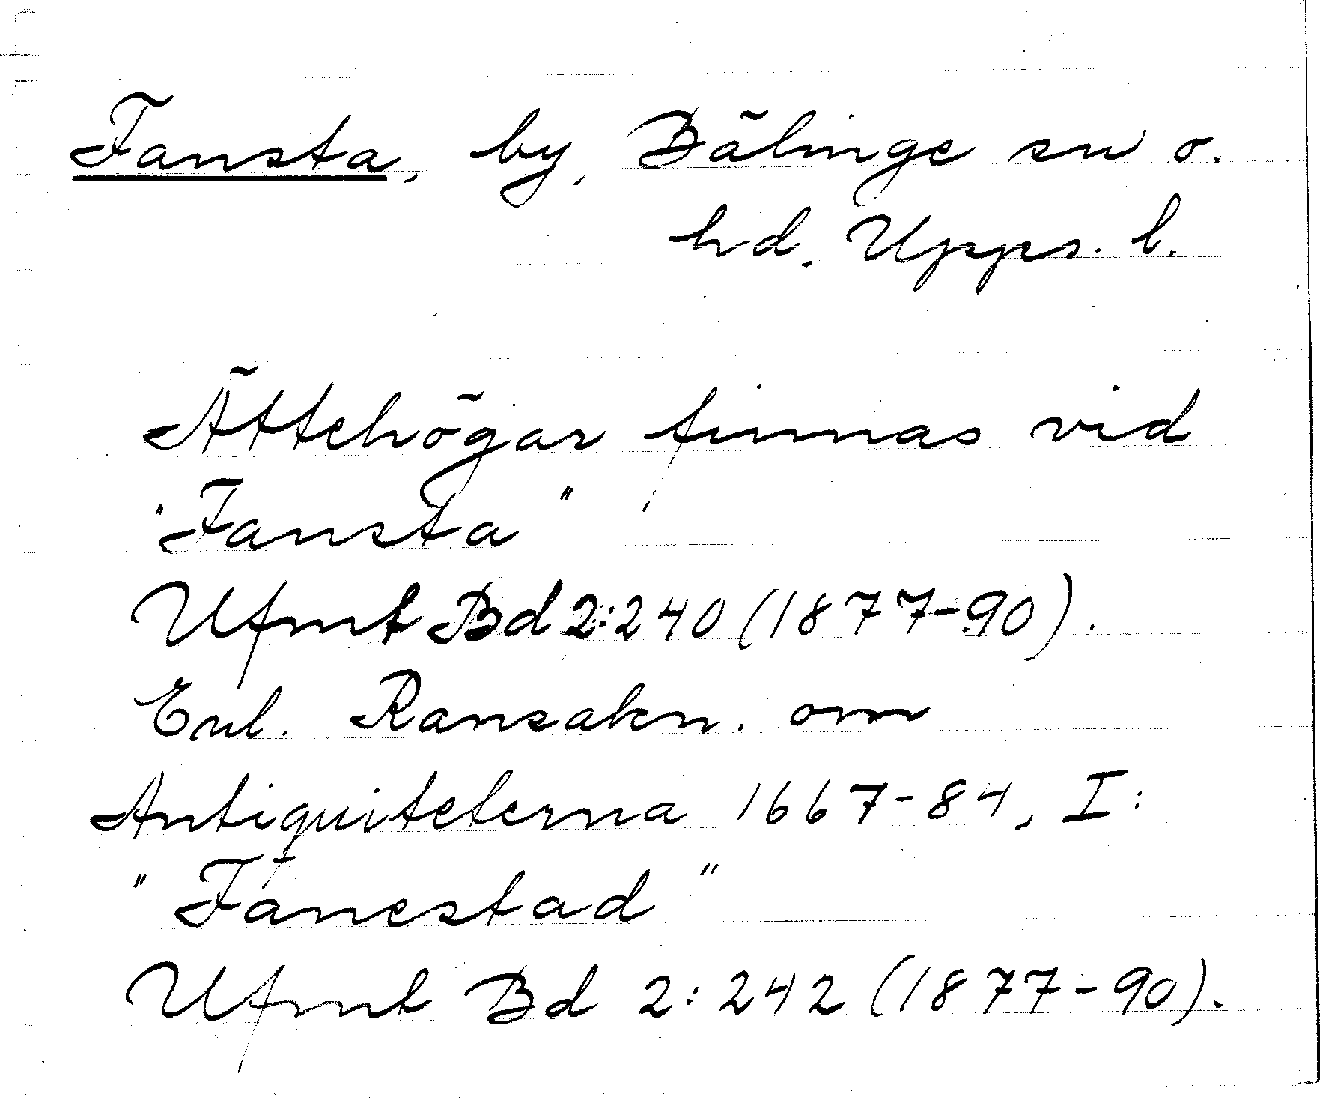 Fansta, by, Bälinge sn o.
hd, Upps. l.
Ättehögar finnas vid
"Fansta"
Ufmt Bd 2:240 (1877-90).
Enl. Ransakn. om
Antiquiteterna 1667-84, I:
"Fanestad"
Ufmt Bd 2:242 (1877-90).